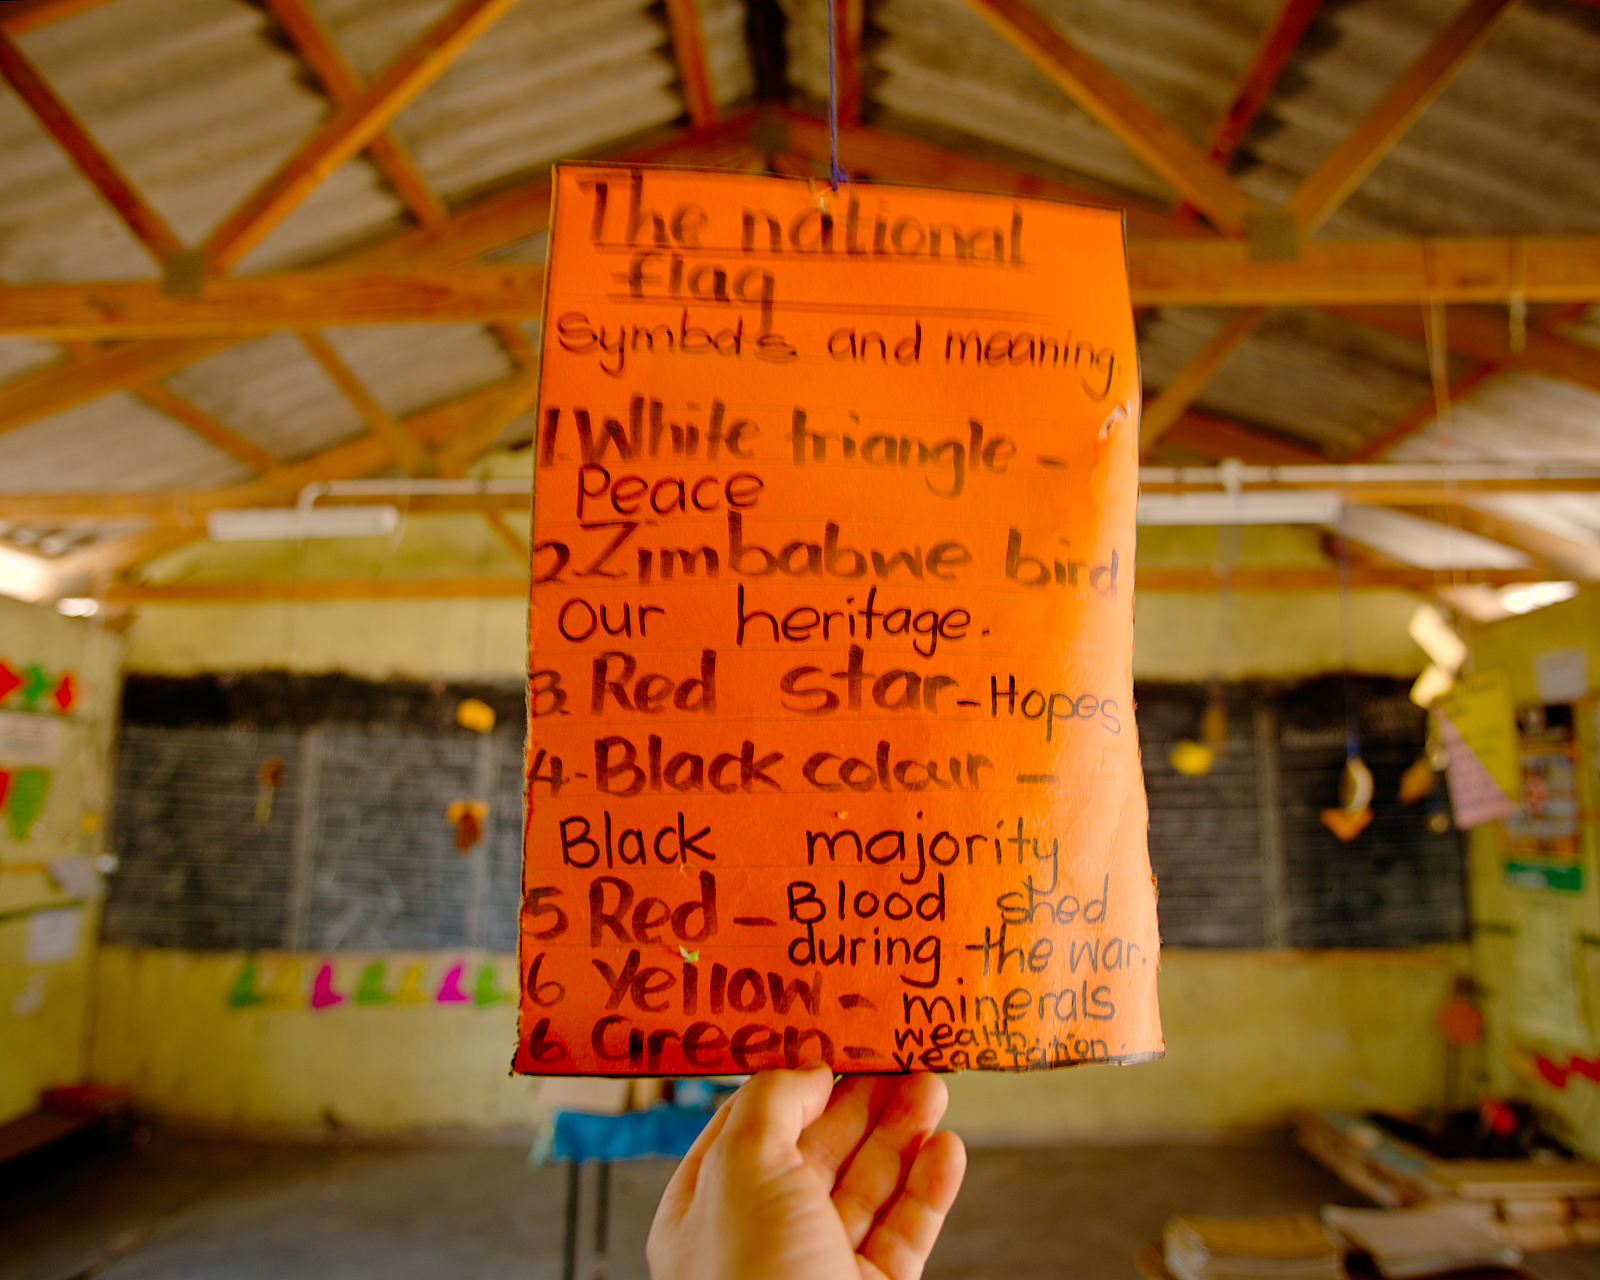 The national
flag
Symbols and meaning.
1. White triangle -
Peace
2. Zimbabwe bird
our heritage.
3. Red star - Hopes
4. - Black colour -
Black majority
5 Red - Blood shed
during the war.
6 Yellow - minerals
6 Green - wealth
vegetation.